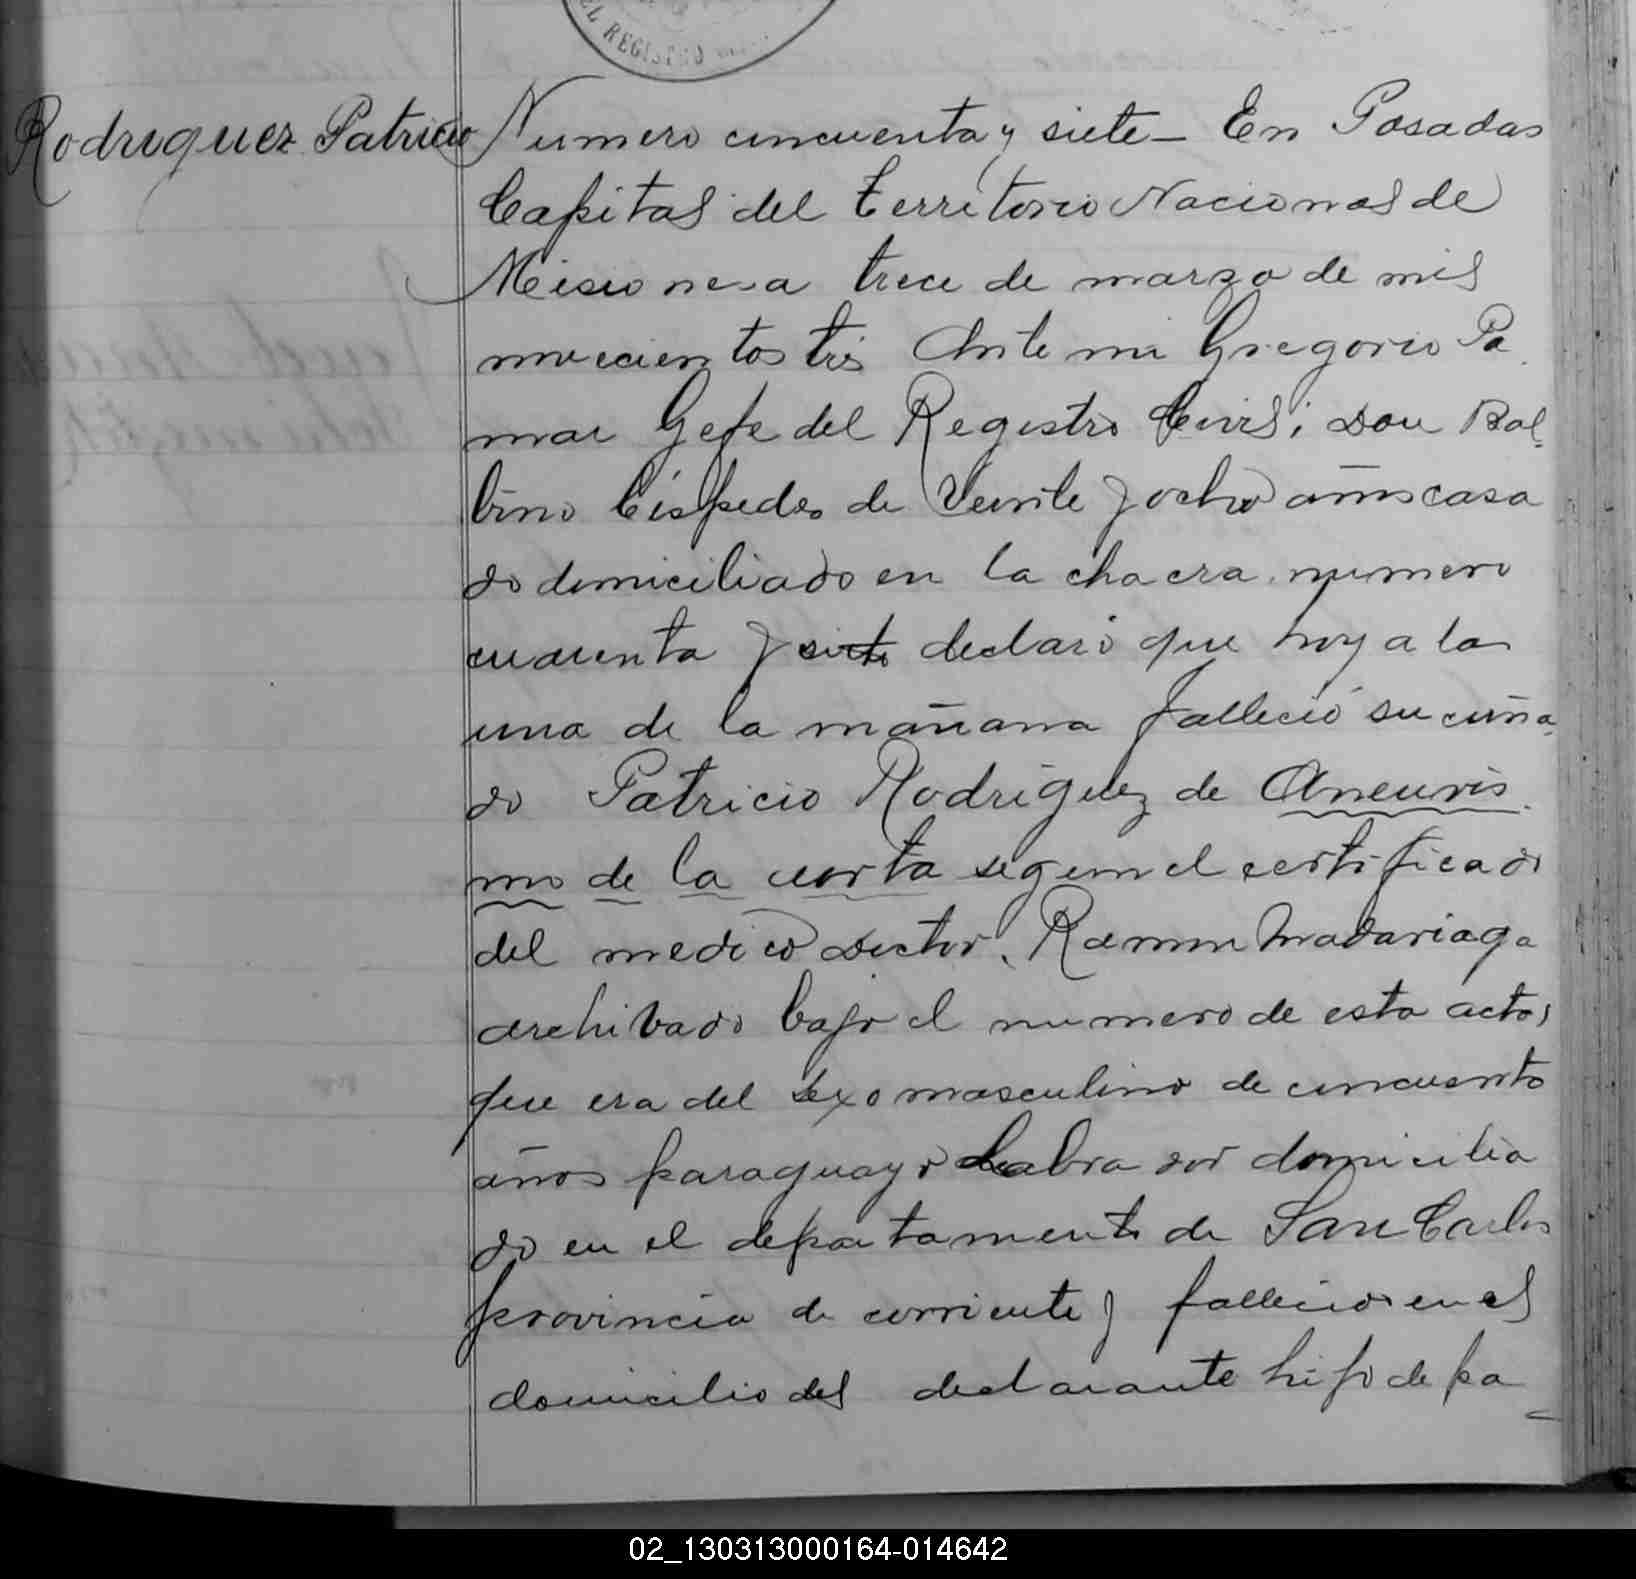 EL REGISTRO
Rodriguez Patricio
Numero cincuenta y siete- En Posadas
Capital del Territorio Nacional de
Misiones a trece de marzo de mil
novecientos tres Ante mi Gregorio Pa
mar Gefe del Registro Civil; Don Bal-
bino Céspedes de Veinte y ocho años casa
do domiciliado en la chacra numero
cuarenta y siete declaró que hoy a la
una de la mañana falleció su cuña
do Patricio Rodriguez de Aneuris
mo de la aorta segun el certificado
del medico Doctor, Ramon Madariaga
archivado bajo el numero de esta acta;
que era del sexo masculino de cincuenta
años paraguayo Labrador domicilia
do en el departamento de San Carlos
provincia de corrientes falleció en el
domicilio del declarante hijo de pa-
02_130313000164-014642